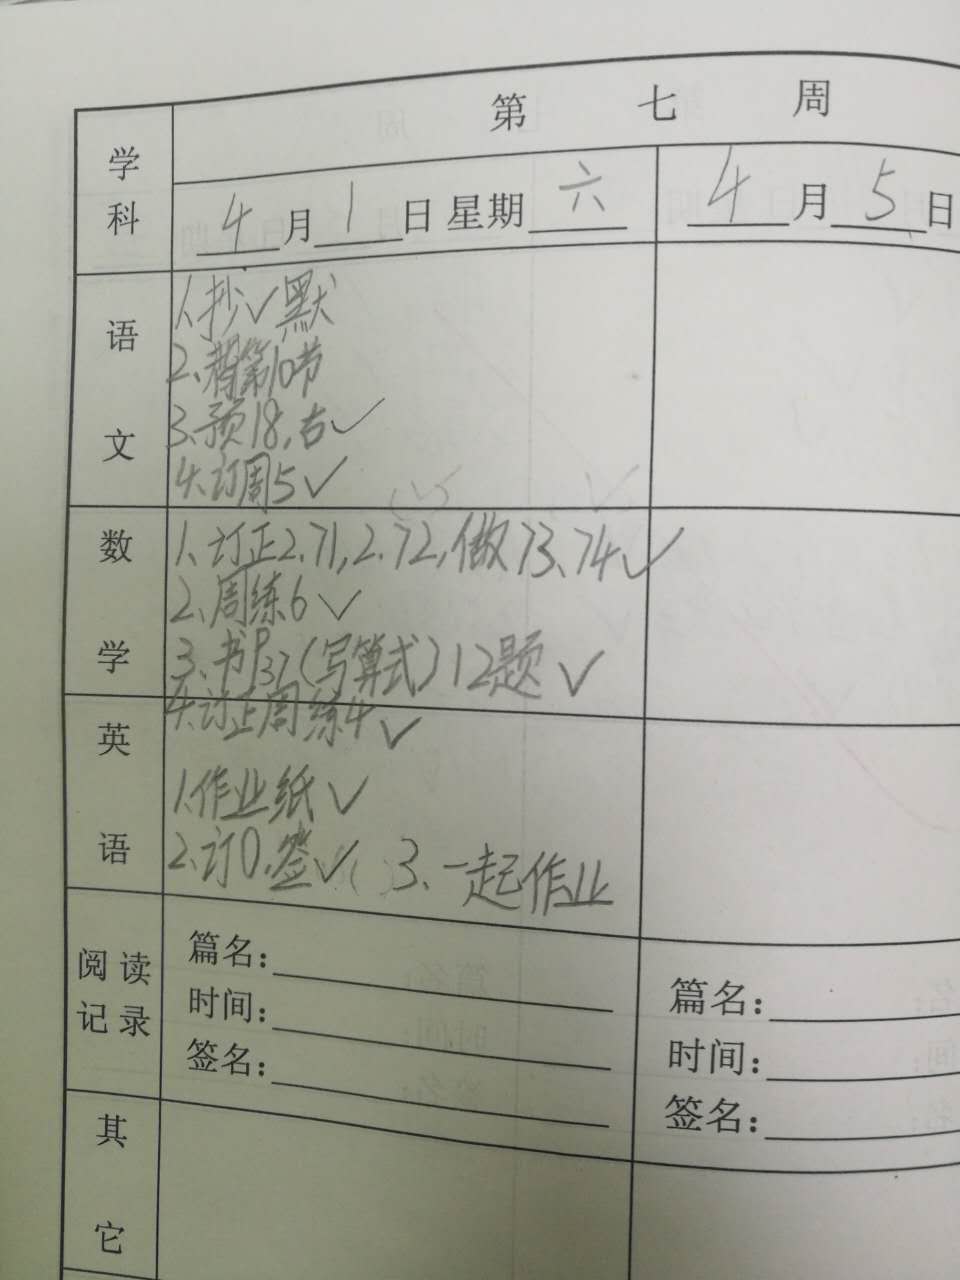 第 七 周
学科
4月1日 星期六
4月5日
语文
1.抄✓默
2、背第10节
3、预18,古✓
4、订周5✓
数学
1、订正2.71,2.72,做73、74✓
2、周练6✓
3、书P37(写算式)12题✓
4.订正周练4✓
英语
1.作业纸✓
2、订0.签✓
3、一起作业
阅读记录
篇名:
时间:
签名:
篇名:
时间:
签名:
其它